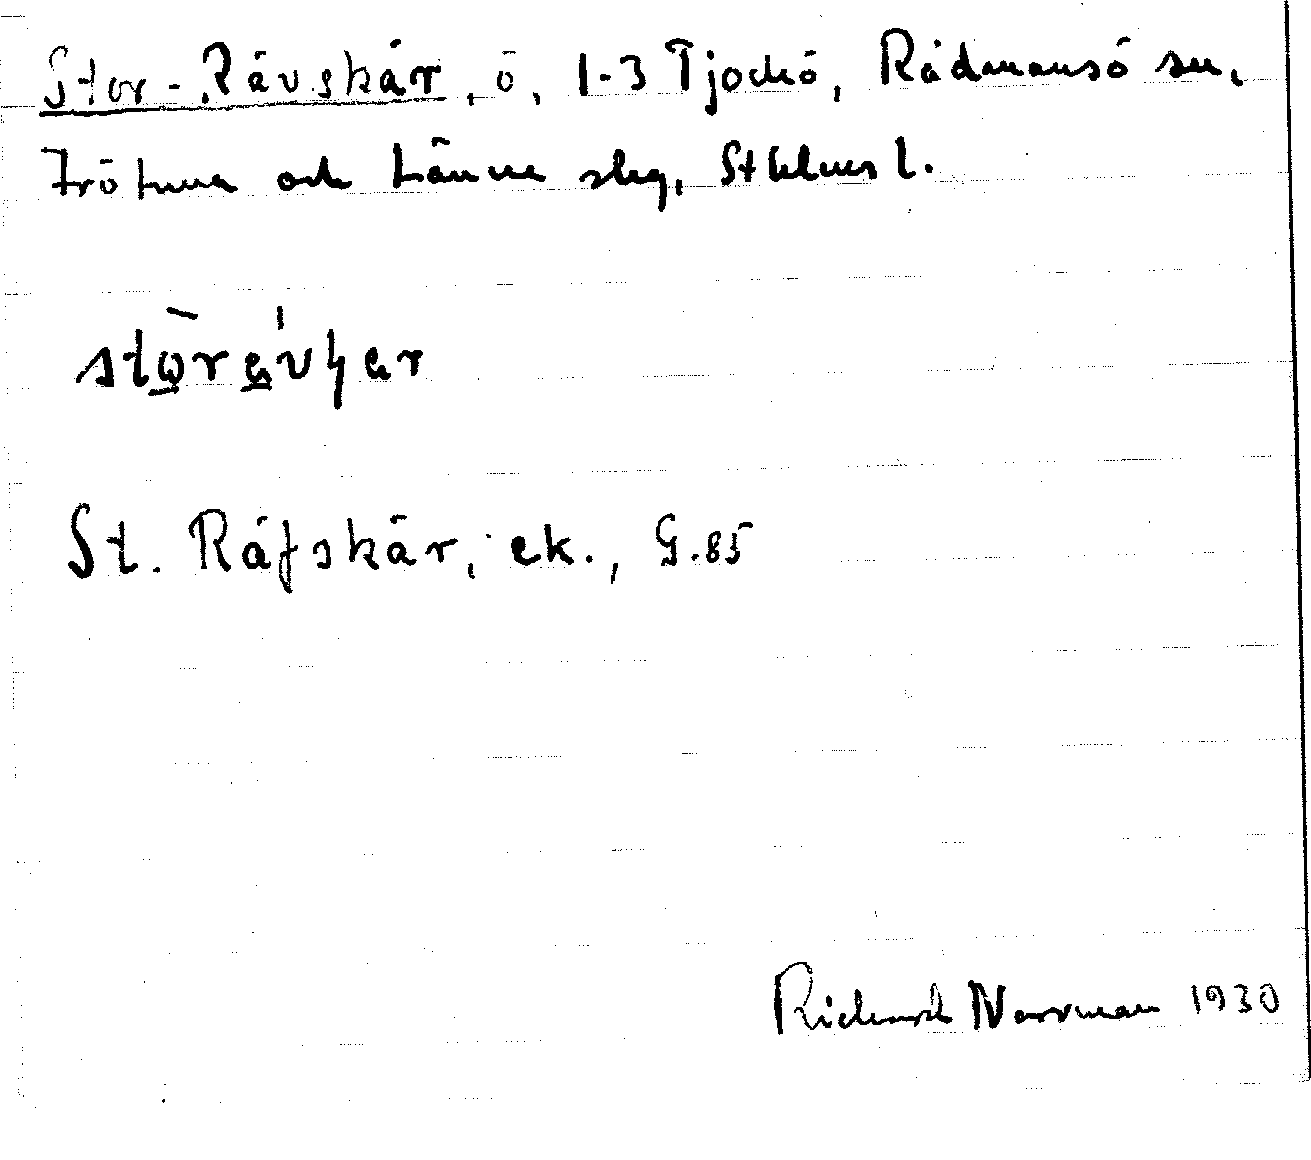 Stor-Rävskär, ö, 1-3 Tjockö, Rådmansö sn,
Frötuna och Länna slg, Sthlms l.
St. Räfskär, ek., G.85
Richard Norrman 1930